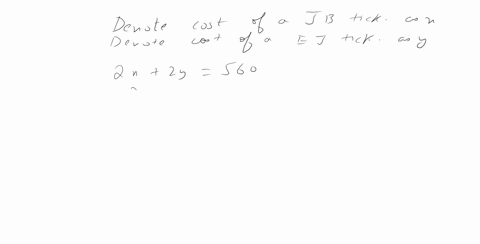 Denote cost of a JB tick. as x
Denote cost of a EJ tick. as y
2x + 2y = 560